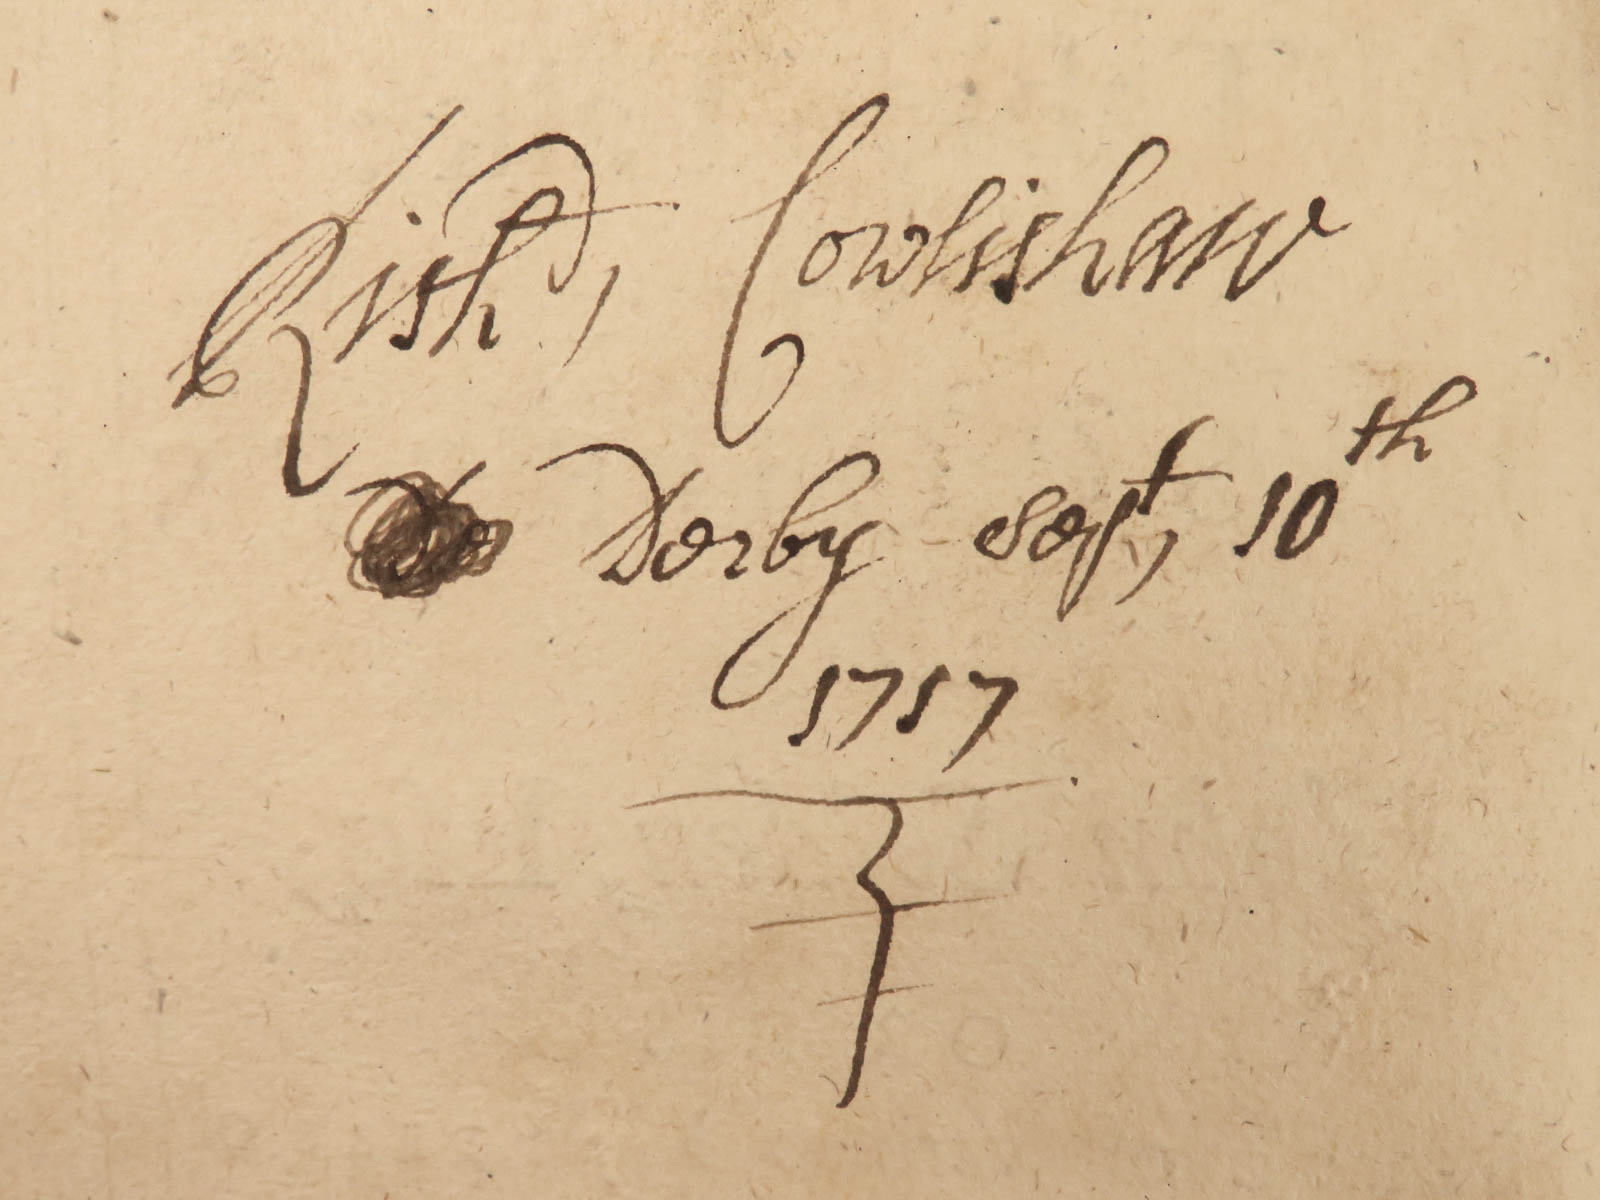 Rich^d, Cowlishaw
Derby Sept, 10th
1717